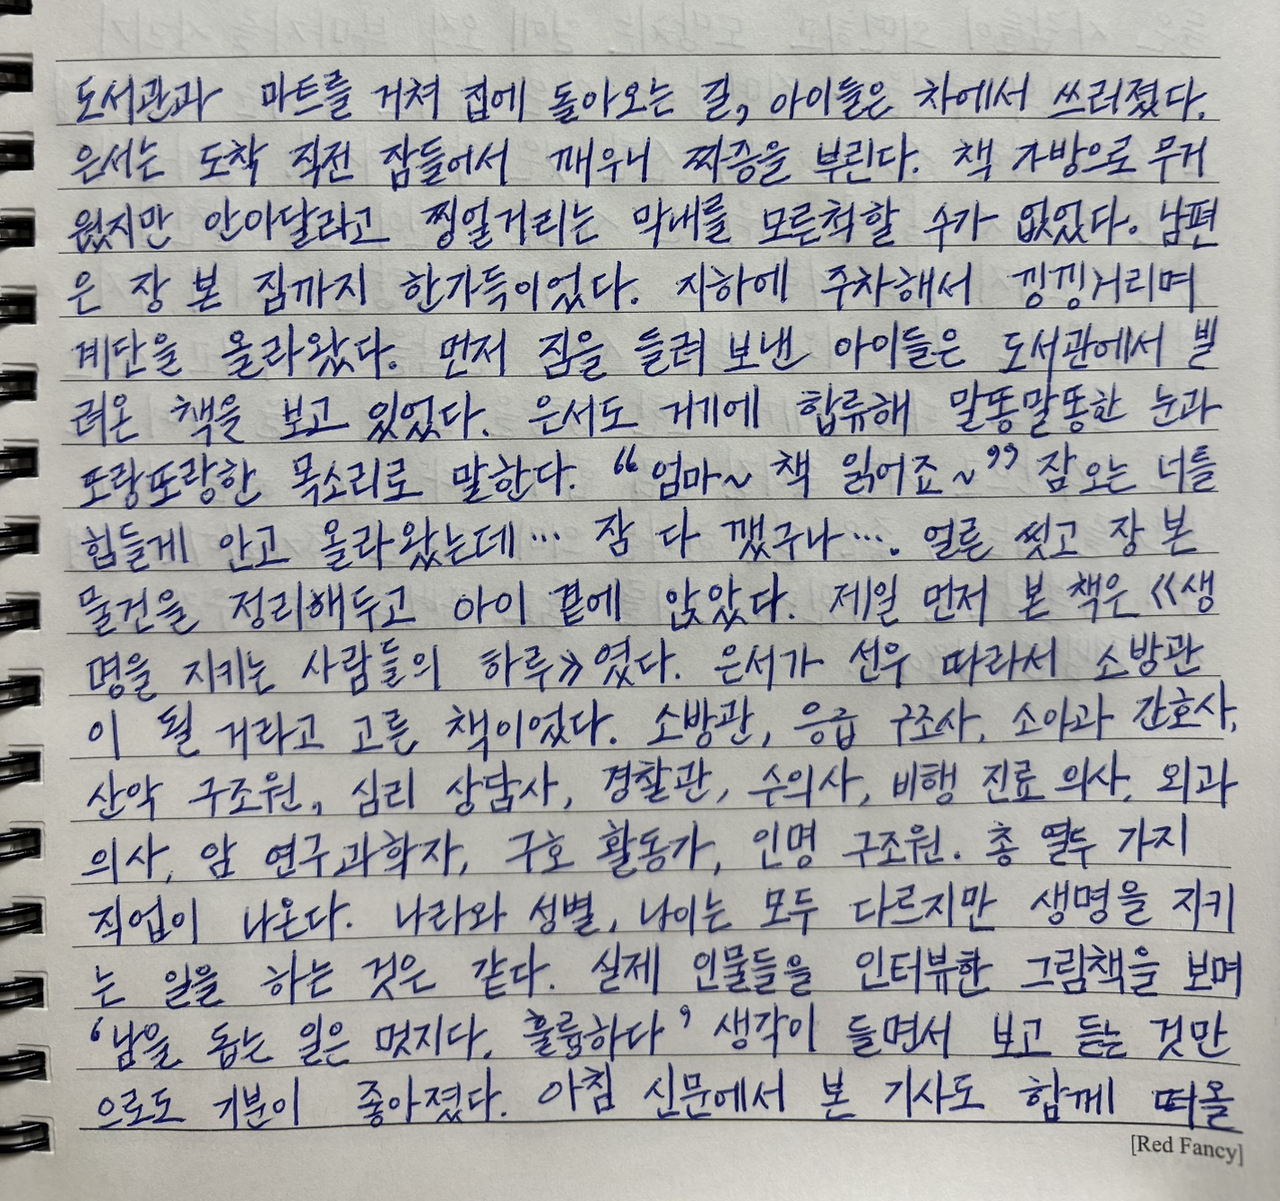 도서관과 마트를 거쳐 집에 돌아오는 길, 아이들은 차에서 쓰러졌다.
은서는 도착 직전 잠들어서 깨우니 짜증을 부린다. 책 가방으로 무거
웠지만 안아달라고 찡얼거리는 막내를 모른척할 수가 없었다. 남편
은 장 본 짐까지 한가득이었다. 지하에 주차해서 낑낑거리며
계단을 올라왔다. 먼저 짐을 들려 보낸 아이들은 도서관에서 빌
려온 책을 보고 있었다. 은서도 거기에 합류해 말똥말똥한 눈과
또랑또랑한 목소리로 말한다. “엄마~ 책 읽어죠~” 잠오는 너틀
힘들게 안고 올라왔는데… 잠 다 깼구나…. 얼른 씻고 장 본
물건을 정리해두고 아이 곁에 앉았다. 제일 먼저 본 책은 《생
명을 지키는 사람들의 하루》였다. 은서가 선우 따라서 소방관
이 될 거라고 고른 책이었다. 소방관, 응급 구조사, 소아과 간호사,
산악 구조원, 심리 상담사, 경찰관, 수의사, 비행 진료 의사, 외과
의사, 암 연구과학자, 구호 활동가, 인명 구조원. 총 열두 가지
직업이 나온다. 나라와 성별, 나이는 모두 다르지만 생명을 지키
는 일을 하는 것은 같다. 실제 인물들을 인터뷰한 그림책을 보며
‘남을 돕는 일은 멋지다. 훌륭하다’ 생각이 들면서 보고 듣는 것만
으로도 기분이 좋아졌다. 아침 신문에서 본 기사도 함께 떠올
[Red Fancy]